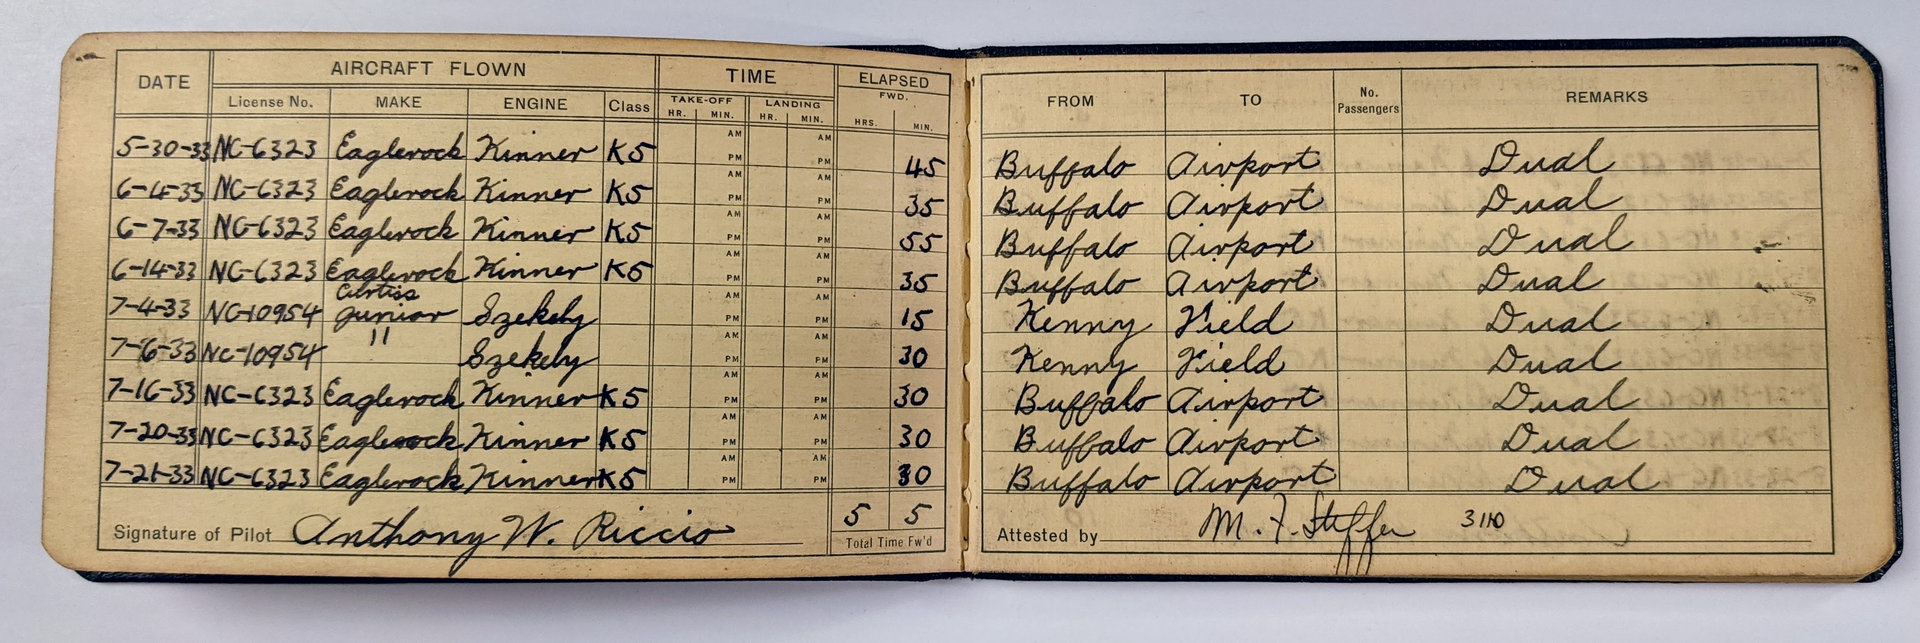 DATE AIRCRAFT FLOWN TIME ELAPSED
License No. MAKE ENGINE Class TAKE-OFF LANDING FWD.
HR. MIN. HR. MIN. HRS. MIN.
FROM TO No. Passengers REMARKS
5-30-33 NC-6323 Eaglerock Kinner K5 AM PM AM PM 45 Buffalo Airport Dual
6-4-33 NC-6323 Eaglerock Kinner K5 AM PM AM PM 35 Buffalo Airport Dual
6-7-33 NC-6323 Eaglerock Kinner K5 AM PM AM PM 55 Buffalo Airport Dual
6-14-33 NC-6323 Eaglerock Kinner K5 AM PM AM PM 35 Buffalo Airport Dual
7-4-33 NC-10954 Curtiss Junior Szekely AM PM AM PM 15 Kenny Field Dual
7-6-33 NC-10954 11 Szekely AM PM AM PM 30 Kenny Field Dual
7-16-33 NC-6323 Eaglerock Kinner K5 AM PM AM PM 30 Buffalo Airport Dual
7-20-33 NC-6323 Eaglerock Kinner K5 AM PM AM PM 30 Buffalo Airport Dual
7-21-33 NC-6323 Eaglerock Kinner K5 AM PM AM PM 30 Buffalo Airport Dual
Signature of Pilot Anthony W. Riccio 5 5
Total Time Fw'd
Attested by M. F. Steffer 3110